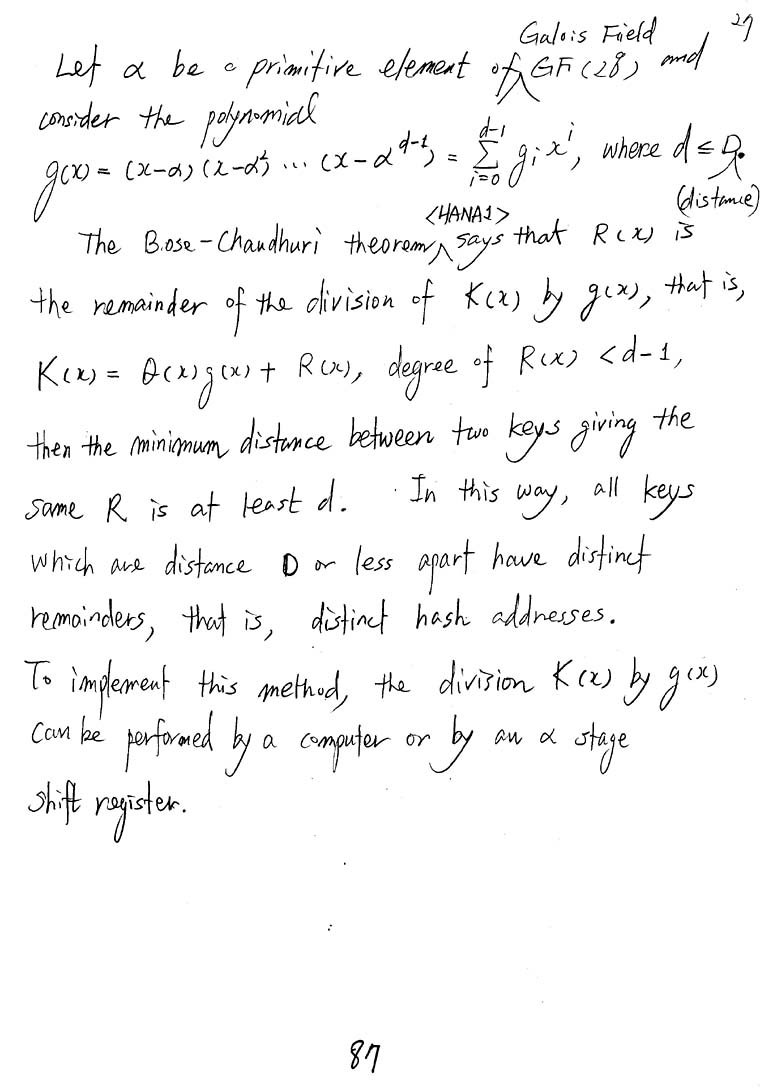 27
Galois Field
Let α be a primitive element of GF(28) and
consider the polynomial
g(x) = (x-α)(x-α²) ... (x-α^{d-1}) = Σ_{i=0}^{d-1} g_i x^i, where d ≤ D.
(distance)
<HANA1>
The Bose-Chaudhuri theorem says that R(x) is
the remainder of the division of K(x) by g(x), that is,
K(x) = Q(x)g(x) + R(x), degree of R(x) < d-1,
then the minimum distance between two keys giving the
same R is at least d. In this way, all keys
which are distance D or less apart have distinct
remainders, that is, distinct hash addresses.
To implement this method, the division K(x) by g(x)
can be performed by a computer or by an α stage
shift register.
87